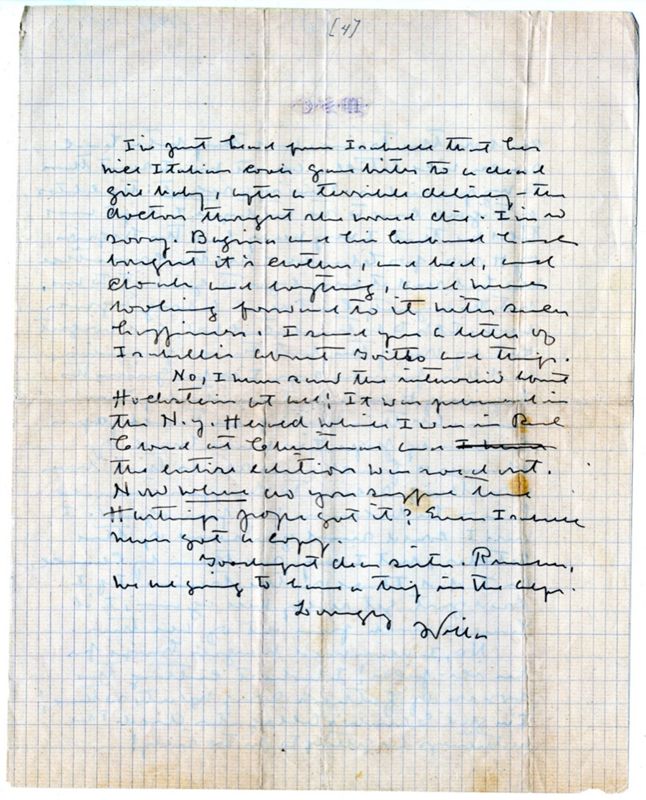 [4]
I've just heard from Isabelle that her
nice Italian cook gave birth to a dead
girl baby, after a terrible delivery - the
doctors thought she would die. I'm so
sorry. Bagina and her husband had
bought it's clothes, and bed, and
and everything, and were
looking forward to it with such
happiness. I send you a letter of
Isabelle's about and things.
No, I never saw the interview about
Hochstein at all! It was published in
the N.Y. Herald while I was in Red
Cloud at Christmas and I have
the entire edition was sold out.
Now where do you suppose the
Hastings people got it? Even Isabelle
never got a copy.
Goodnight dear sister. Remember,
we are going to have a trip in the alps.
Lovingly
Willa